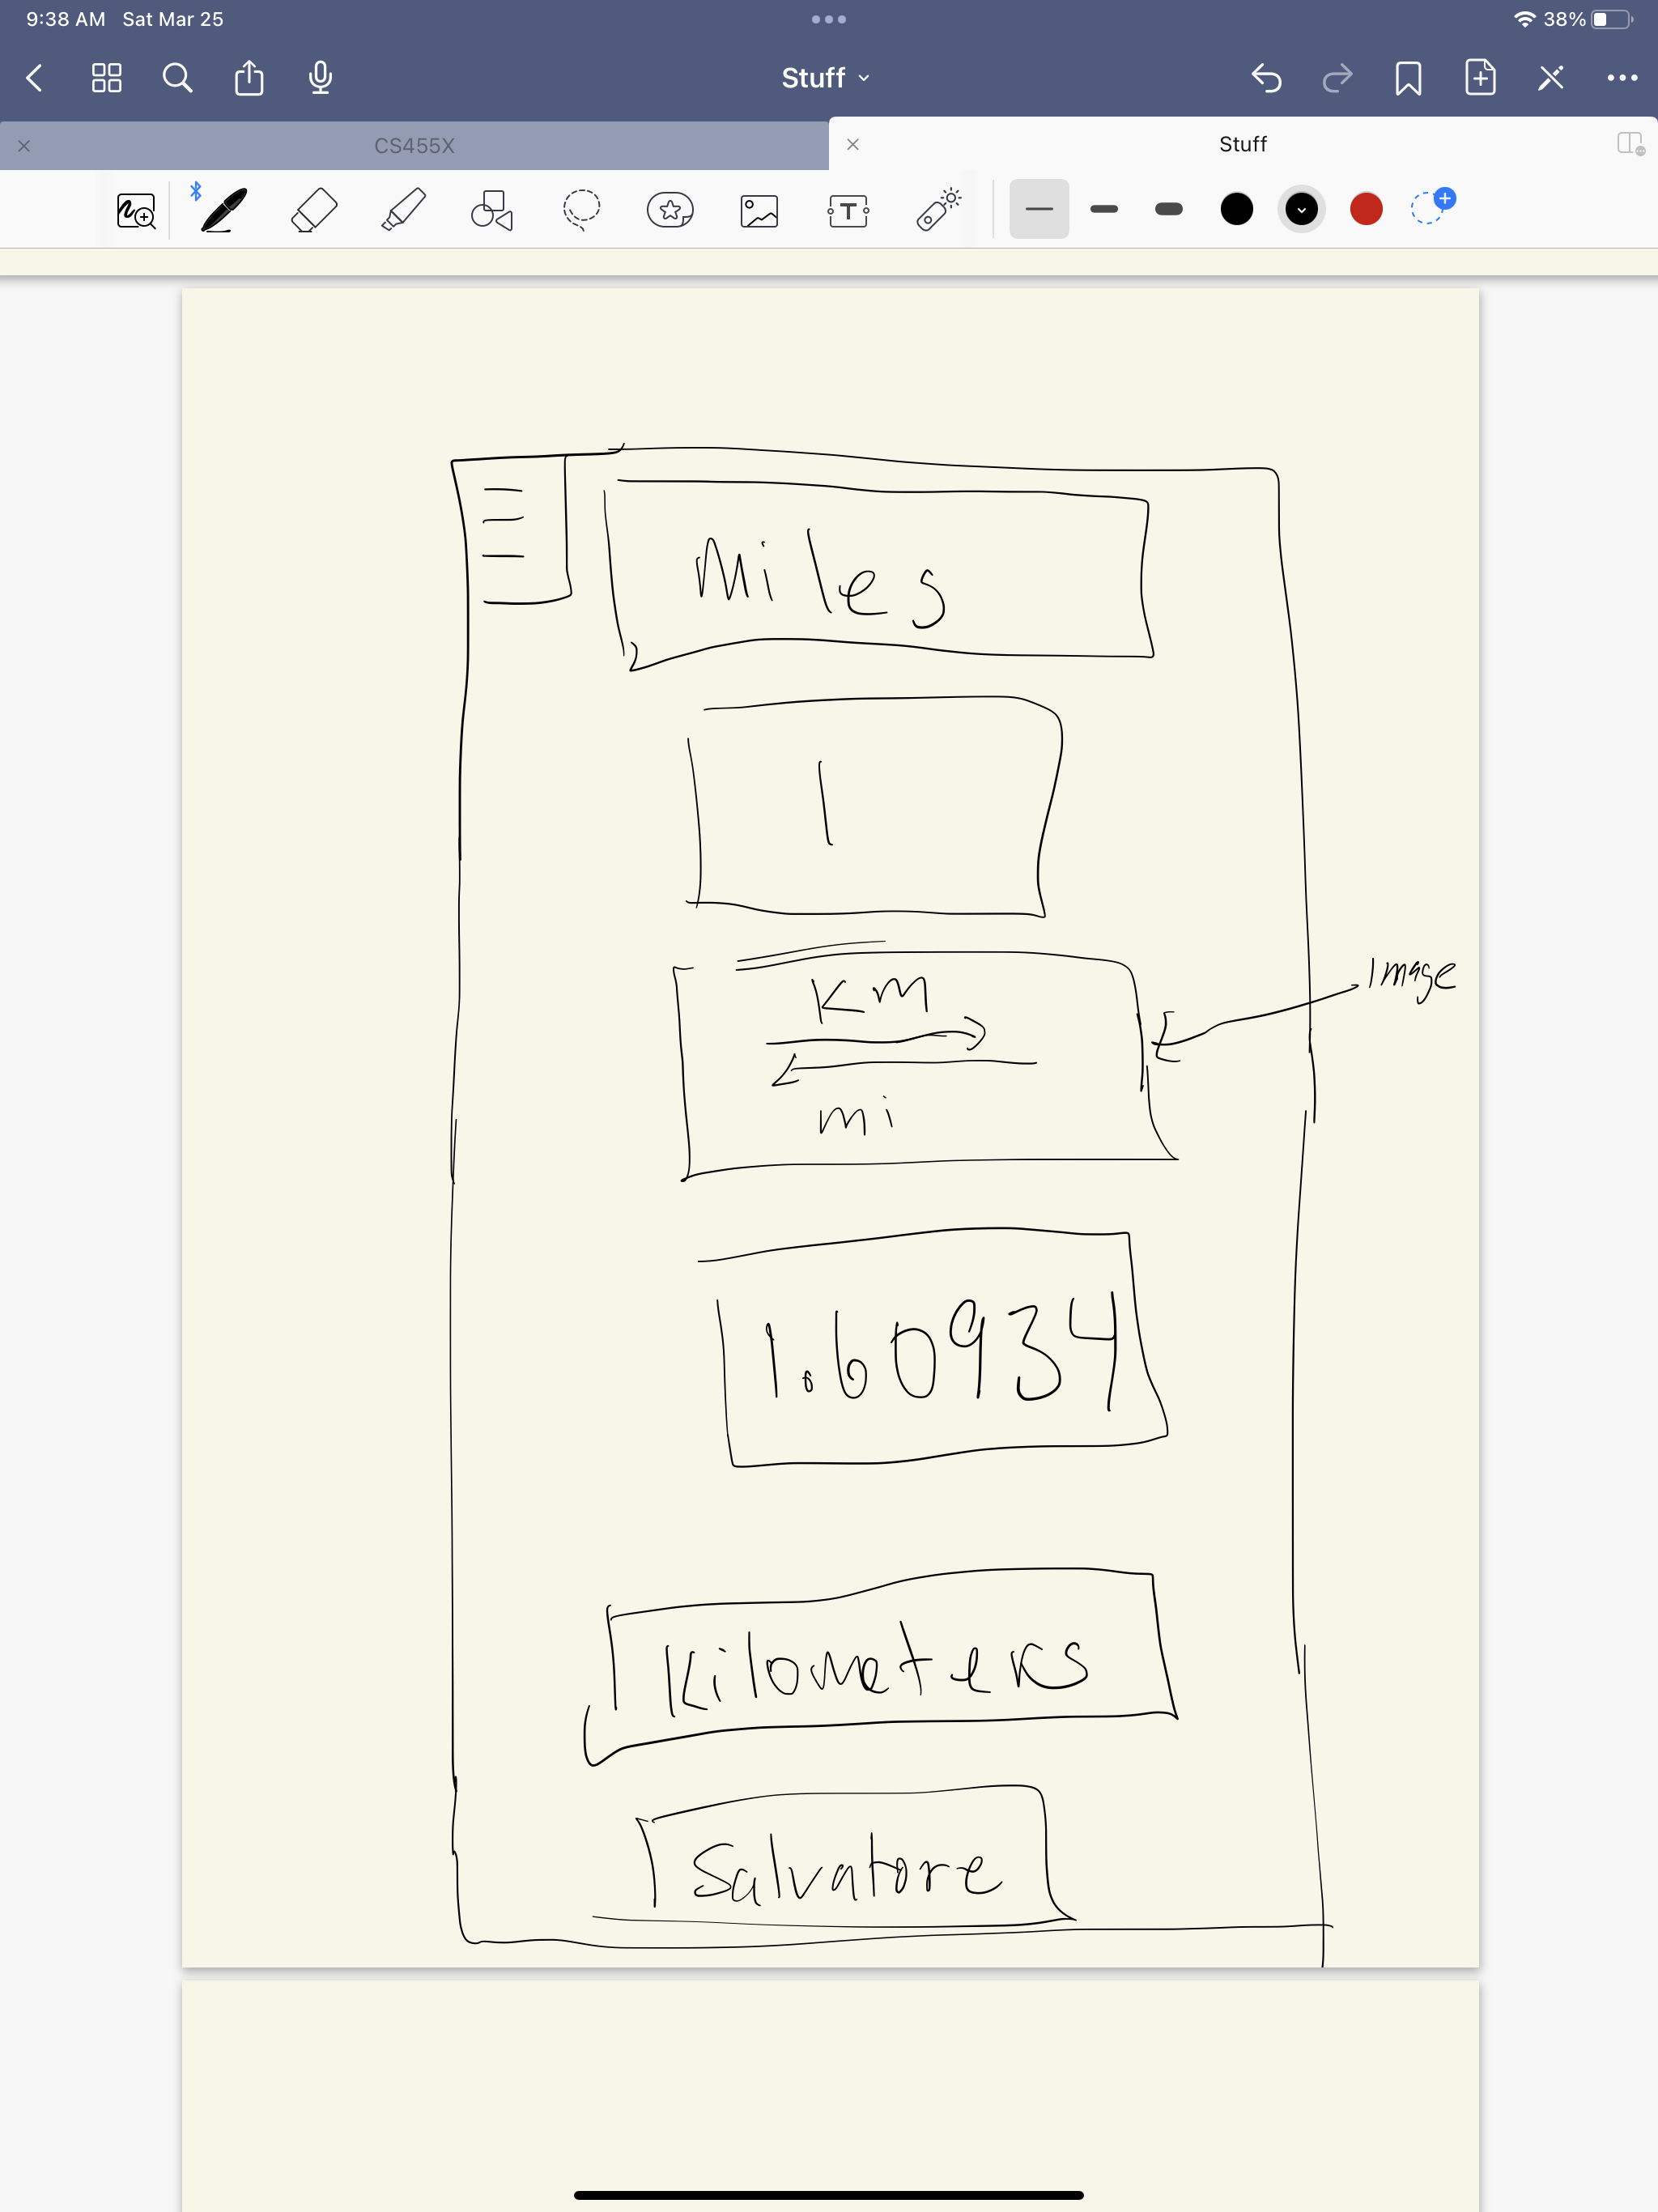 9:38 AM Sat Mar 25
38%
Stuff
CS455X
Stuff
T
Miles
1
KM
Image
mi
1.60934
Kilometers
Salvatore